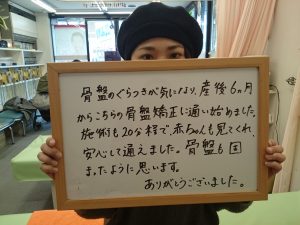 骨盤のぐらつきが気になり、産後6ヵ月
からこちらの骨盤矯正に通い始めました。
施術も20分程で、赤ちゃんも見てくれ、
安心して通えました。骨盤も固
まったように思います。
ありがとうございました。